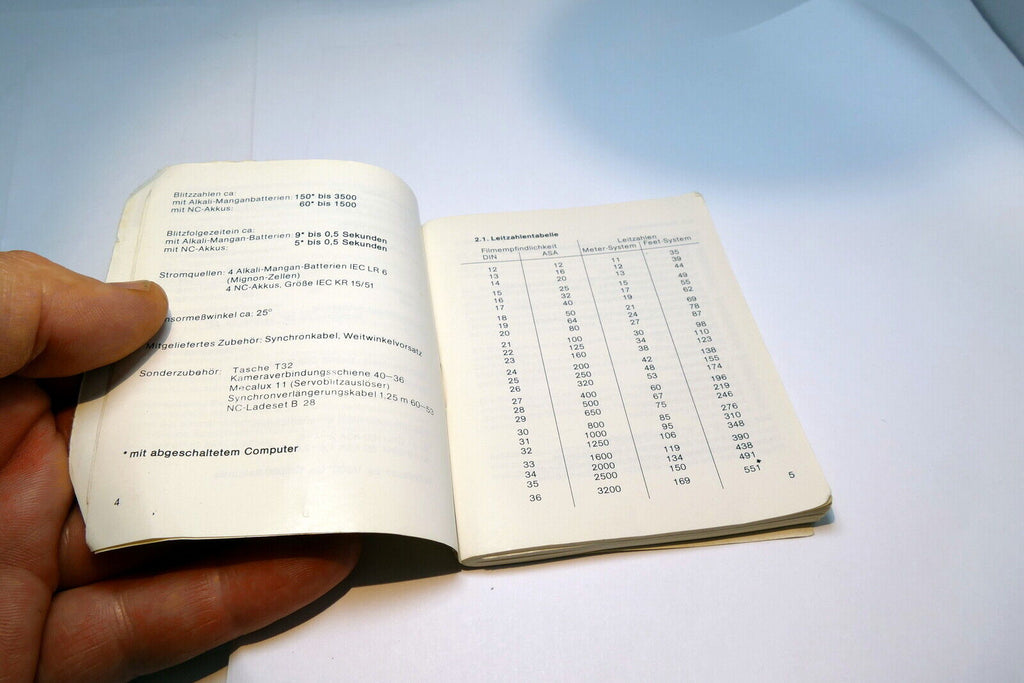 Blitzzahlen ca:
mit Alkali-Manganbatterien: 150* bis 3500
mit NC-Akku: 60* bis 1500
Blitzfolgezeitein ca:
mit Alkali-Mangan-Batterien: 9* bis 0,5 Sekunden
mit NC-Akku: 5* bis 0,5 Sekunden
Stromquellen: 4 Alkali-Mangan-Batterien IEC LR 6
(Mignon-Zellen)
4 NC-Akkus, Größe IEC KR 15/51
ca: 25°
Mitgeliefertes Zubehör: Synchronkabel, Weitwinkelvorsatz
Sonderzubehör: Tasche T32
Kameraverbindungsschiene 40–36
Mecalux 11 (Servoblitzauslöser)
Synchronverlängerungskabel 1.25 m 60–53
NC-Ladeset B 28
* mit abgeschaltetem Computer
4
2.1. Leitzahlentabelle
Filmempfindlichkeit Leitzahlen
DIN ASA Meter-System Feet-System
12 12 11 35
13 16 12 39
14 20 13 44
15 25 15 49
16 32 17 55
17 40 19 62
18 50 21 69
19 64 24 78
20 80 27 87
21 100 30 98
22 125 34 110
23 160 38 123
24 200 42 138
25 250 48 155
26 320 53 174
27 400 60 196
28 500 67 219
29 650 75 246
30 800 85 276
31 1000 95 310
32 1250 106 348
33 1600 119 390
34 2000 134 438
35 2500 150 491
36 3200 169 551
5